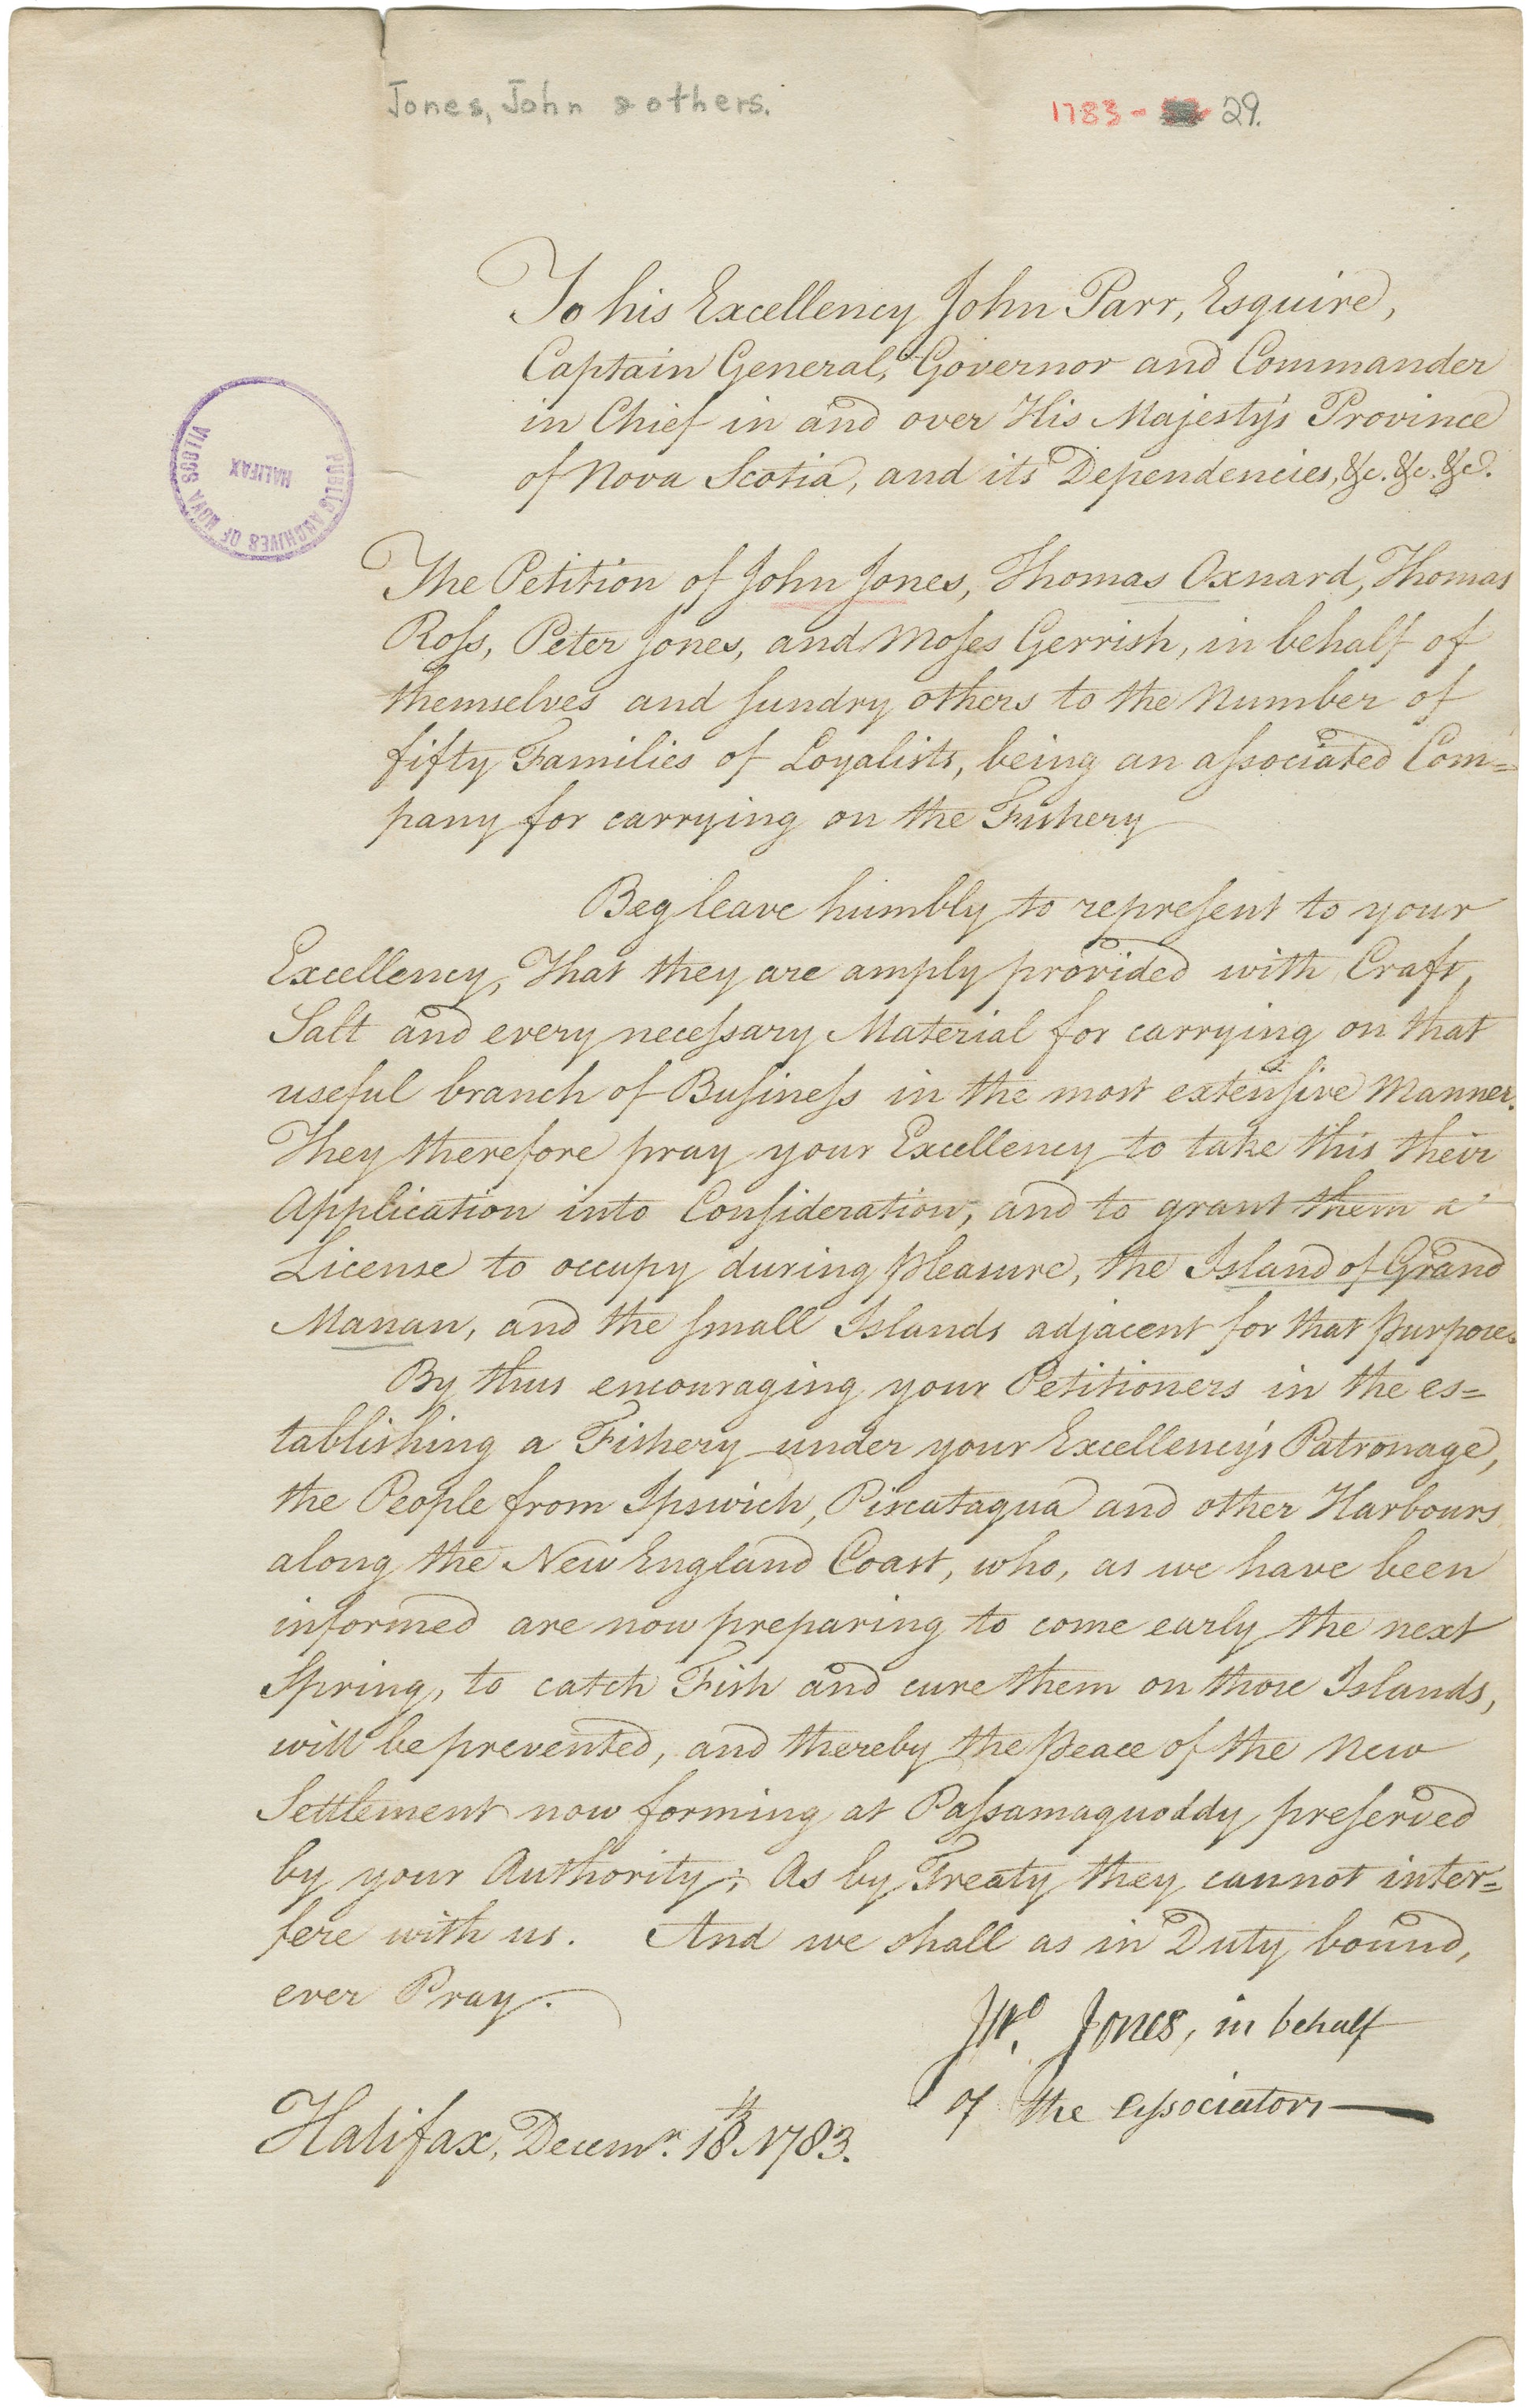 Jones, John & others.
1783 - 29.
To his Excellency John Parr, Esquire,
Captain General, Governor and Commander
in Chief in and over His Majesty's Province
of Nova Scotia, and its Dependencies, &c. &c. &c.
PUBLIC ARCHIVES OF NOVA SCOTIA
HALIFAX
The Petition of John Jones, Thomas Oxnard, Thomas
Roſs, Peter Jones, and Moſes Gerrish, in behalf of
themselves and ſundry others to the Number of
fifty Families of Loyalists, being an aſsociated Com=
pany for carrying on the Fishery
Beg leave humbly to repreſent to your
Excellency, That they are amply provided with Craft,
Salt and every neceſsary Material for carrying on that
useful branch of Buſineſs in the most extenſive Manner.
They therefore pray your Excellency to take this their
Application into Conſideration, and to grant them a
License to occupy during pleasure, the Island of Grand
Manan, and the ſmall Islands adjacent for that purpose.
By thus encouraging your Petitioners in the es=
tablishing a Fishery under your Excellency's Patronage,
the People from Ipswich, Piscataqua and other Harbours
along the New England Coast, who, as we have been
informed are now preparing to come early the next
Spring, to catch Fish and cure them on those Islands,
will be prevented, and thereby the peace of the New
Settlement now forming at Paſsamaquoddy preſerved
by your Authority; As by Treaty they cannot inter=
fere with us. And we shall as in Duty bound,
ever Pray.
Jno. Jones, in behalf
of the aſsociators
Halifax, Decemr. 18th 1783.